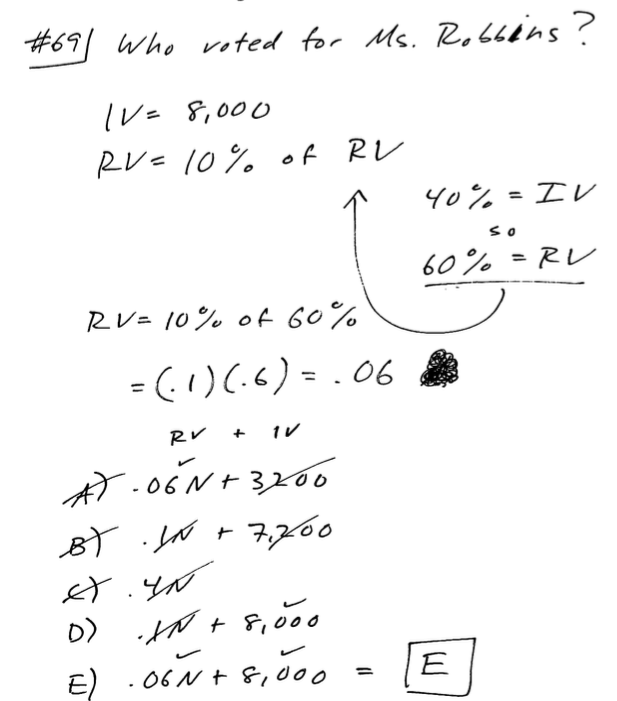 #69| Who voted for Ms. Robbins?
IV= 8,000
RV= 10% of RV
40% = IV
so
60% = RV
RV= 10% of 60%
= (.1)(.6) = .06
RV + IV
A) .06N + 3200
B) .1N + 7,200
C) .4N
D) .1N + 8,000
E) .06N + 8,000 = E